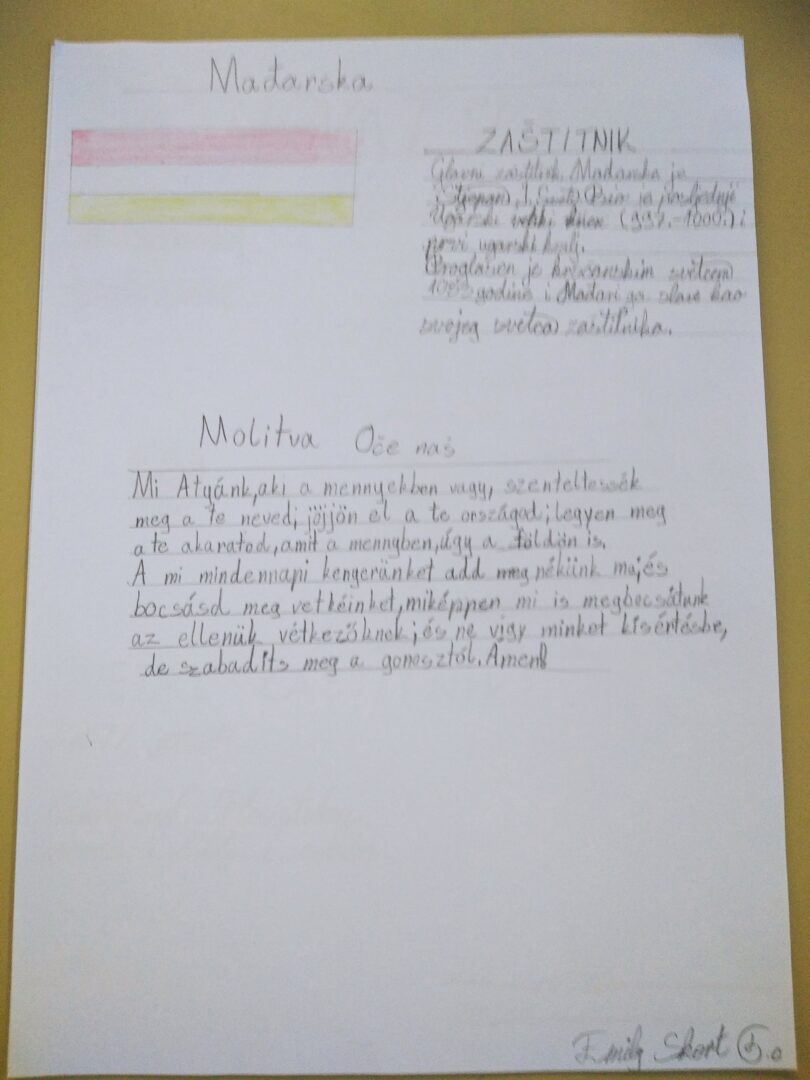 Mađarska
ZAŠTITNIK
Glavni zaštitnik Mađarska je
Stjepan I. Sveti. Bio je posljednji
Ugarski veliki knez (997.-1000.) i
prvi ugarski kralj.
Proglašen je kršćanskim svetcem
1083 godine i Mađari ga slave kao
svojeg svetca zaštitnika.
Molitva Oče naš
Mi Atyánk, aki a mennyekben vagy, szenteltessék
meg a te neved; jöjjön el a te országod; legyen meg
a te akaratod, amit a mennyben, úgy a földön is.
A mi mindennapi kenyerünket add meg nékünk ma; és
bocsásd meg vetkéinket, miképpen mi is megbocsátunk
az ellenük vétkezőknek; és ne vigy minket kisértésbe,
de szabadits meg a gonosztól. Amen
Emily Skort 5.